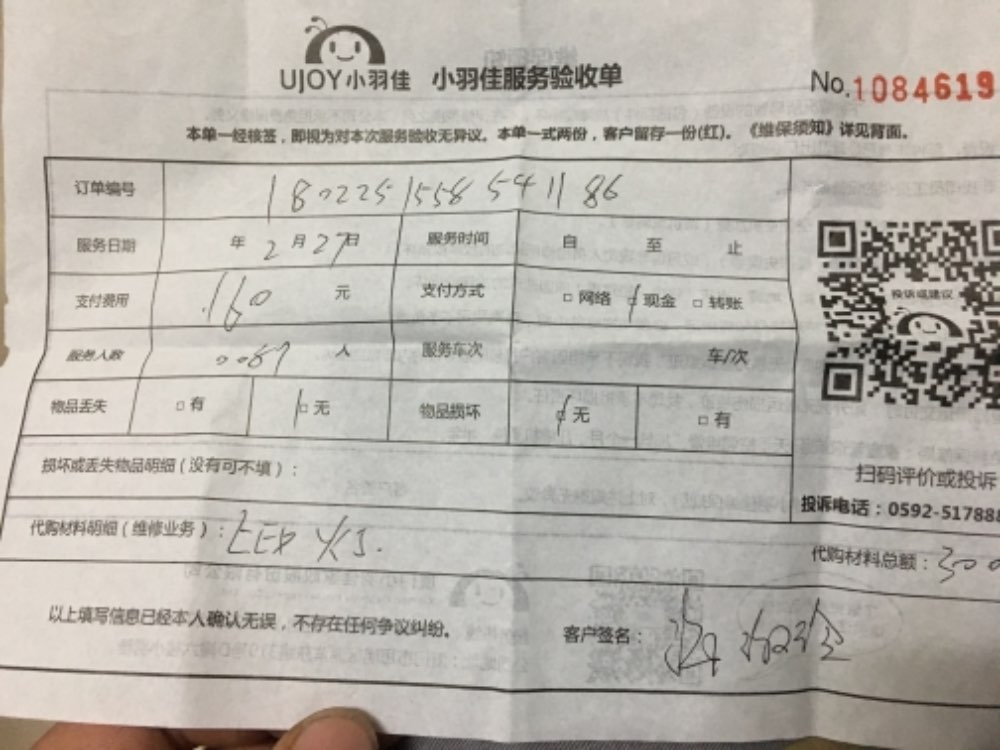 UJOY小羽佳 小羽佳服务验收单
No.1084619
本单一经核签，即视为对本次服务验收无异议。本单一式两份，客户留存一份(红)。《维保须知》详见背面。
订单编号 18022515585411 86
服务日期 年 2 月 27 日 服务时间 自 至 止
支付费用 160 元 支付方式 □ 网络 □ 现金 □ 转账
投诉或建议
服务人数 0087 人 服务车次 车/次
物品丢失 □ 有 □ 无 物品损坏 □ 无 □ 有
损坏或丢失物品明细（没有可不填）：
扫码评价或投诉
投诉电话：0592-517888
代购材料明细（维修业务）：
代购材料总额：300
以上填写信息已经本人确认无误，不存在任何争议纠纷。
客户签名：